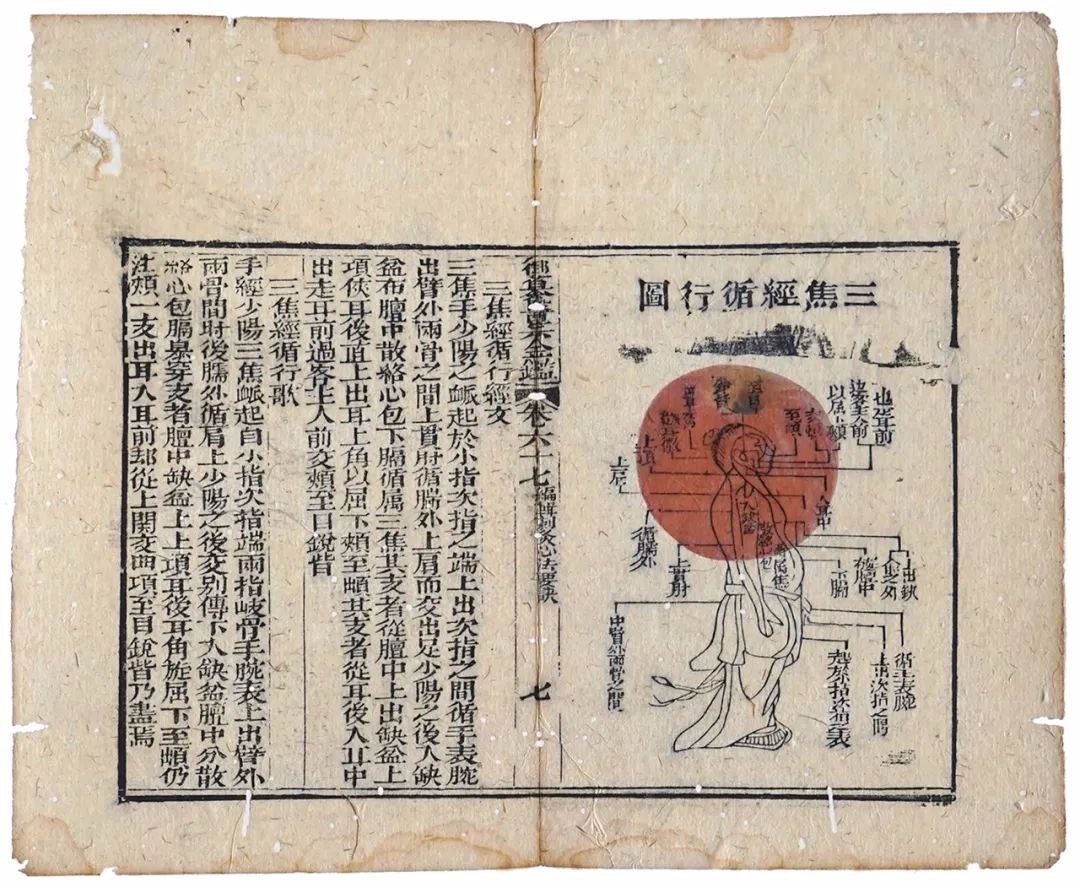 三焦經循行圖
也從耳前
以屈下頰
至䪼
上項
上肩
循臑外
上貫肘
中臂外兩骨之間
入缺盆
下膈
上出缺
盆之外
循手表腕
上出次指之間
起於小指次指之端
卷六十七
編輯刺灸心法要訣
七
三焦經循行經文
三焦手少陽之脈起於小指次指之端上出次指之間循手表腕
出臂外兩骨之間上貫肘循臑外上肩而交出足少陽之後入缺
盆布膻中散絡心包下膈循属三焦其支者從膻中上出缺盆上
項俠耳後直上出耳上角以屈下頰至䪼其支者從耳後入耳中
出走耳前過客主人前交頰至目銳眥
三焦經循行歌
手經少陽三焦脈起自小指次指端兩指岐骨手腕表上出臂外
兩骨間肘後臑外循肩上少陽之後交别傳下入缺盆膻中分散
絡心包膈裏穿支者膻中缺盆上上項耳後耳角旋屈下至䪼仍
注頰一支出耳入耳前却從上関交曲項至目銳眥乃盡焉